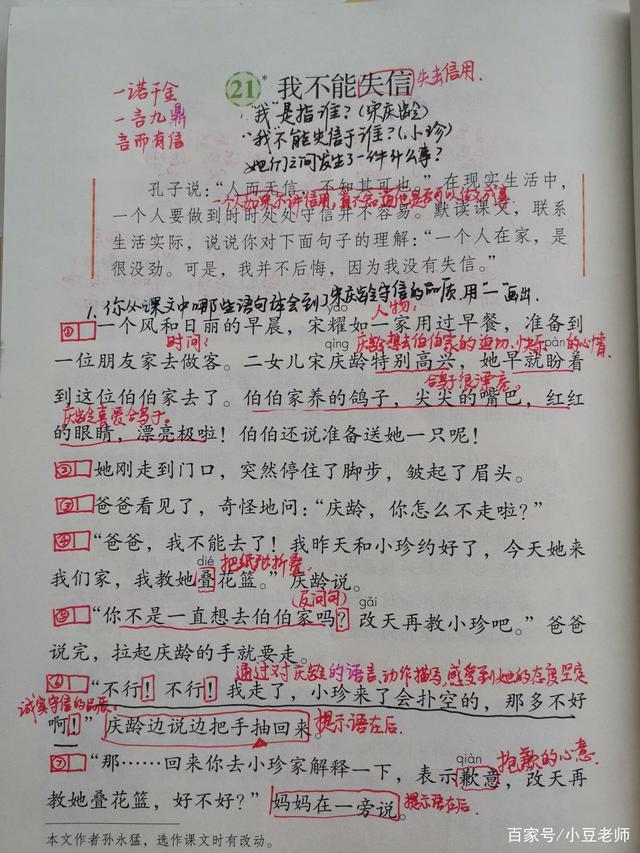 21* 我不能失信 失去信用.
一诺千金
一言九鼎
言而有信
"我"是指谁?(宋庆龄)
"我"不能失信于谁?(小珍)
她们之间发生了一件什么事?
孔子说:"人而无信,不知其可也。"在现实生活中,
一个人如果不讲信用,真不知道他是否可以做成事.
一个人要做到时时处处守信并不容易。默读课文,联系
生活实际,说说你对下面句子的理解:"一个人在家,是
很没劲。可是,我并不后悔,因为我没有失信。"
1. 你从课文中哪些语句体会到了宋庆龄守信的品质.用"—"画出.
人物:
yào
① 一个风和日丽的早晨,宋耀如一家用过早餐,准备到
时间?
庆龄想去伯伯家的迫切、快乐的心情.
qìng
pàn
一位朋友家去做客。二女儿宋庆龄特别高兴,她早就盼着
鸽子很漂亮.
到这位伯伯家去了。伯伯家养的鸽子,尖尖的嘴巴,红红
庆龄喜爱鸽子。
的眼睛,漂亮极啦!伯伯还说准备送她一只呢!
② 她刚走到门口,突然停住了脚步,皱起了眉头。
③ 爸爸看见了,奇怪地问:"庆龄,你怎么不走啦?"
④ "爸爸,我不能去了!我昨天和小珍约好了,今天她来
dié
把纸张折叠.
我们家,我教她叠花篮。"庆龄说。
(反问句)
gǎi
⑤ "你不是一直想去伯伯家吗?改天再教小珍吧。"爸爸
说完,拉起庆龄的手就要走。
通过对庆龄的语言、动作描写,感受到她的态度坚定
⑥ "不行!不行!我走了,小珍来了会扑空的,那多不好
诚实守信的品质.
啊!"庆龄边说边把手抽回来。提示语在后.
qiàn
抱歉的心意.
⑦ "那……回来你去小珍家解释一下,表示歉意,改天再
教她叠花篮,好不好?"妈妈在一旁说。提示语在后.
本文作者孙永猛,选作课文时有改动。
百家号/小豆老师